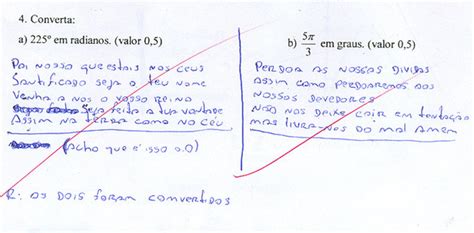 4. Converta:
a) 225º em radianos. (valor 0,5)
Pai nosso que estais nos ceus
Santificado seja o teu nome
Venha a nos o vosso reino
Seja feita a tua vontade
Assim na terra como no céu
(Acho que é isso o.O)
R: os dois foram convertidos
b) 5π/3 em graus. (valor 0,5)
Perdoa as nossas dividas
Assim como perdoaremos aos
nossos devedores
Não nos deixe cair em tentação
mas livra-nos do mal Amem